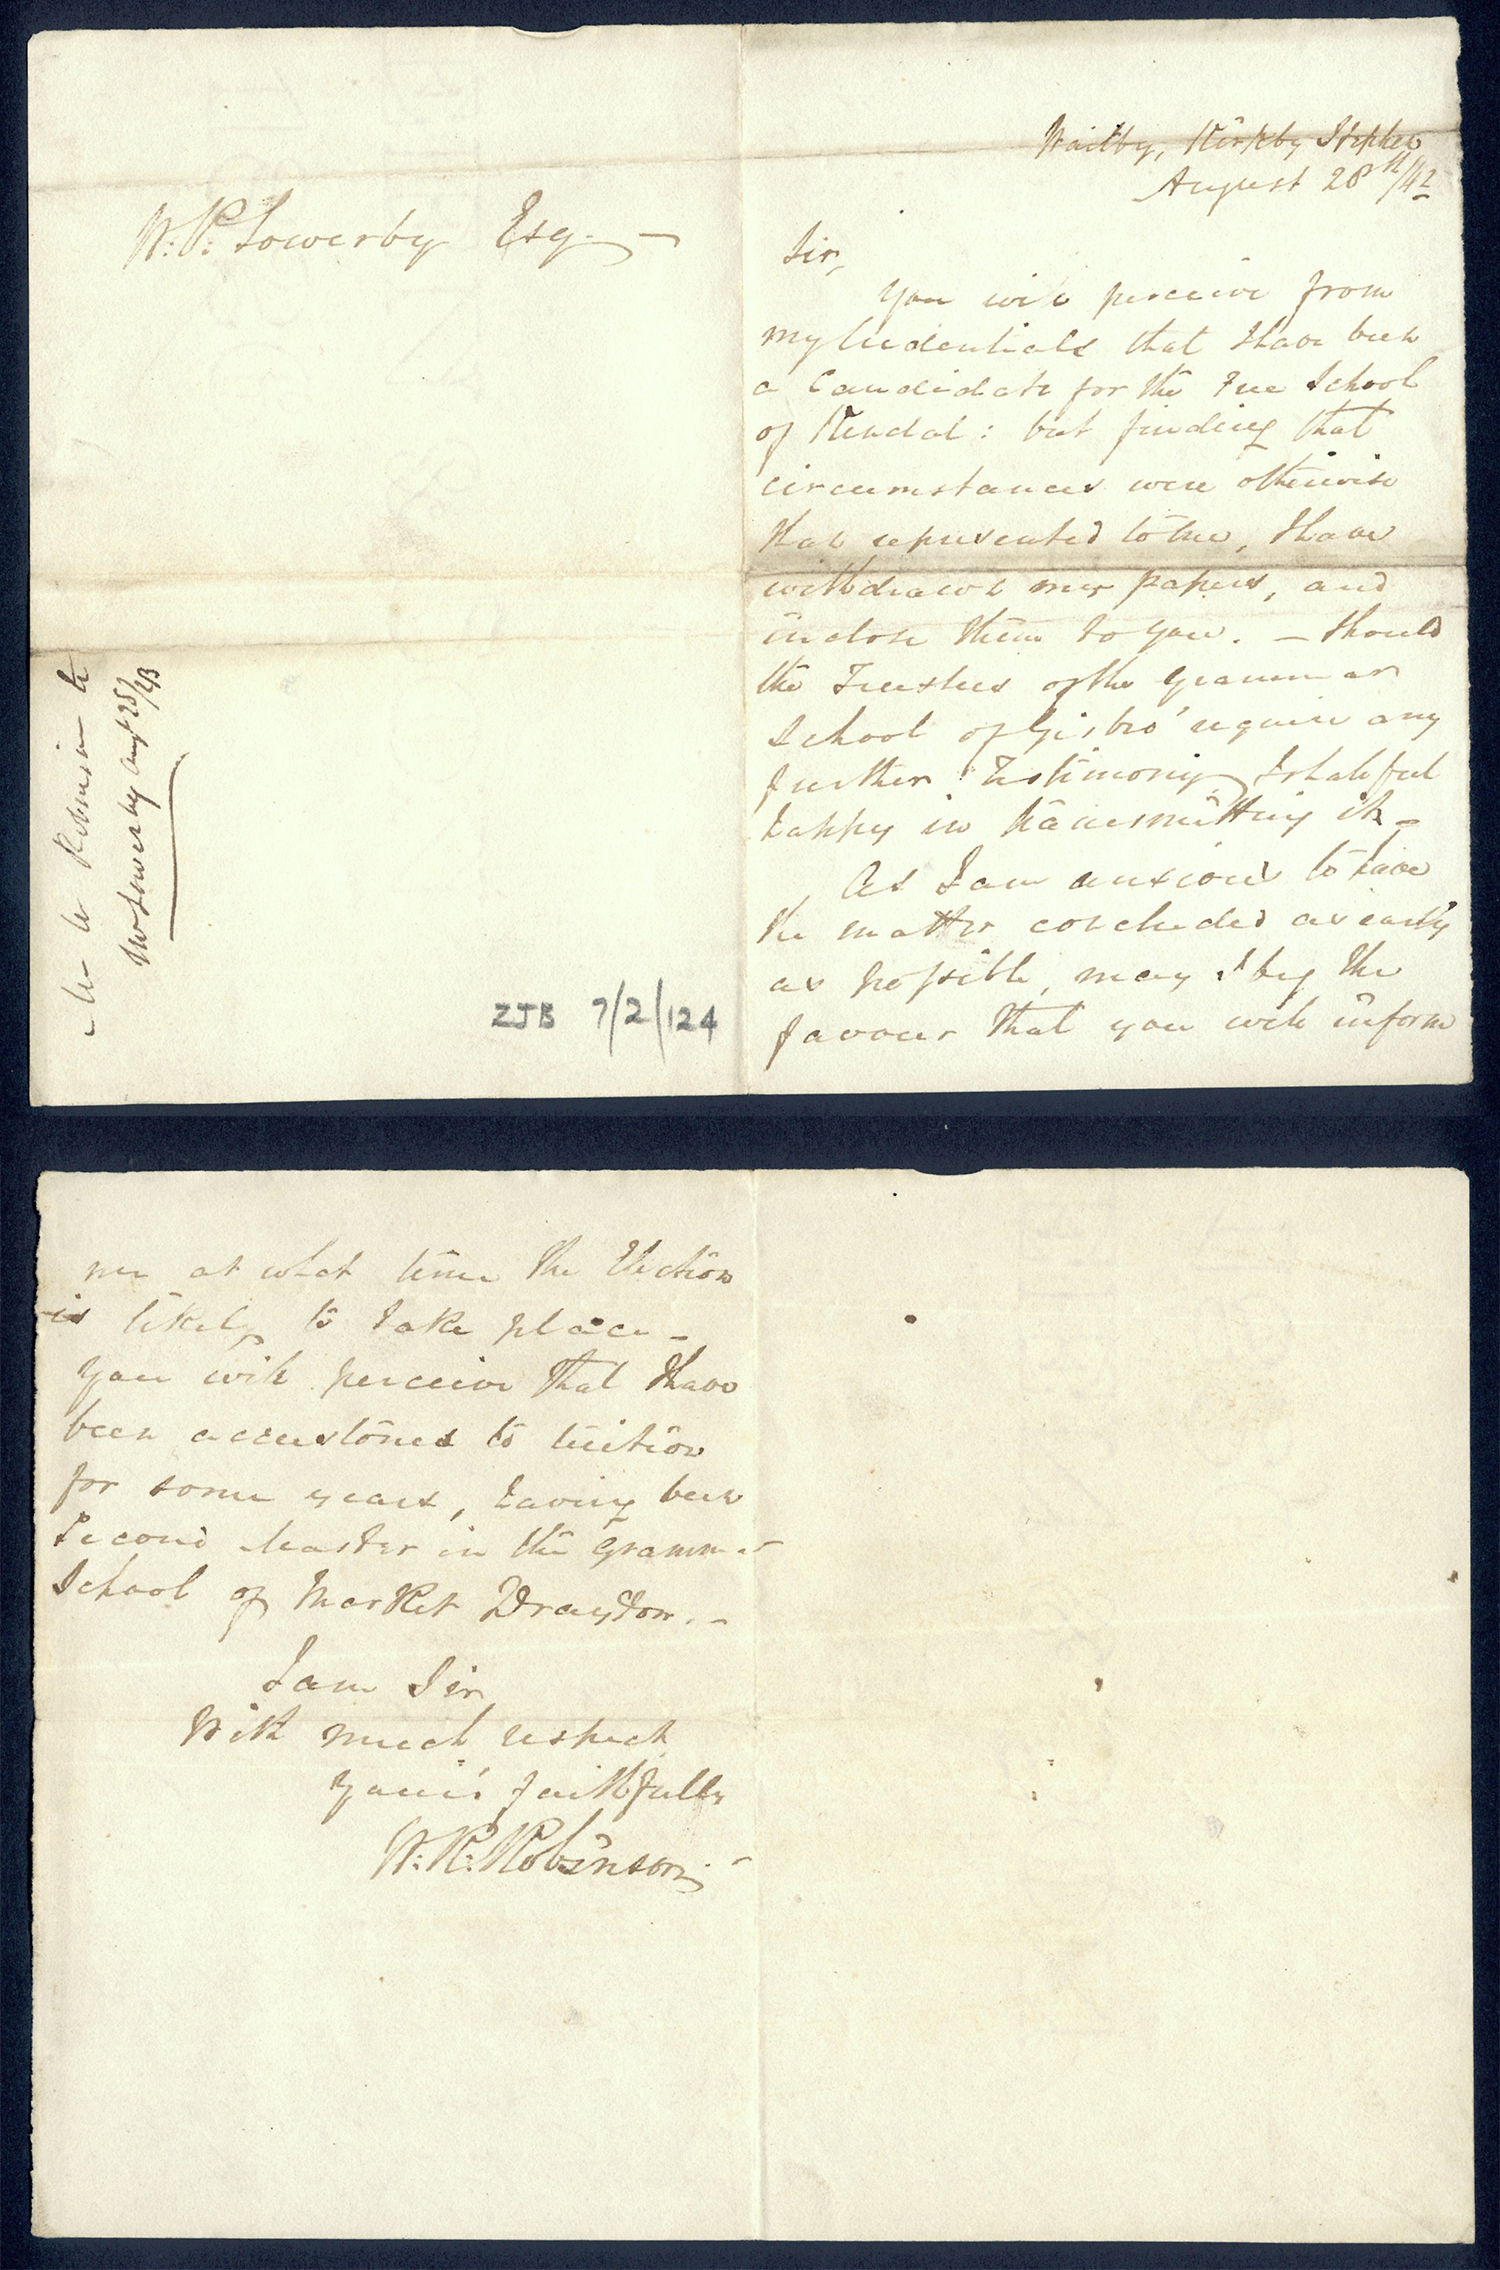 W: P: Sowerby Esq.
Mr W Robinson to
Mr Sowerby Augt 28th/43
ZJB 7/2/124
Waitby, Kirkby Stephen
August 28th/42
Sir,
You will perceive from
my Credentials that I have been
a Candidate for the Free School
of Kendal: but finding that
circumstances were otherwise
than represented to me, I have
withdrawn my papers, and
inclose them to you. — Should
the Trustees of the Grammar
School of Gisbro' require any
further Testimony, I shall feel
happy in transmitting it —
As I am anxious to have
the matter concluded as early
as possible, may I beg the
favour that you will inform
me at what time the Election
is likely to take place —
You will perceive that I have
been accustomed to tuition
for some years, having been
Second Master in the Grammar
School of Market Drayton. —
I am Sir
With much respect
Your's faithfully
W: R: Robinson. —